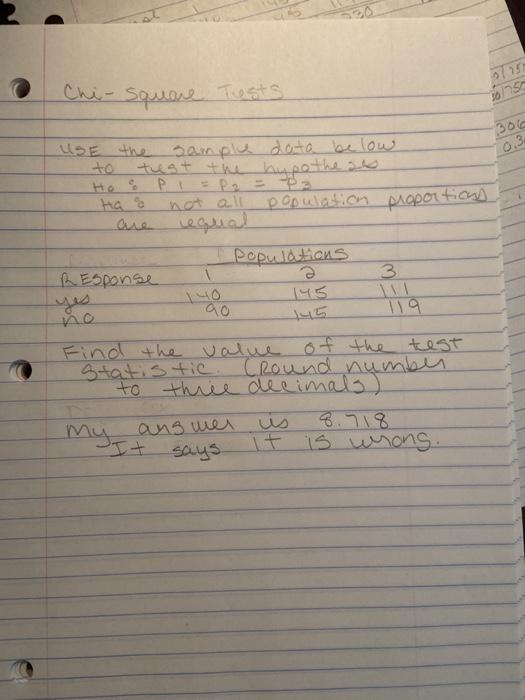 230
Chi-Square Tests
USE the sample data below
to test the hypotheses
Ho: P1 = P2 = P3
Ha: not all population proportions
are equal
Populations
Response 1 2 3
yes 140 145 111
no 90 145 119
Find the value of the test
statistic. (Round number
to three decimals)
my answer is 8.718
It says it is wrong.